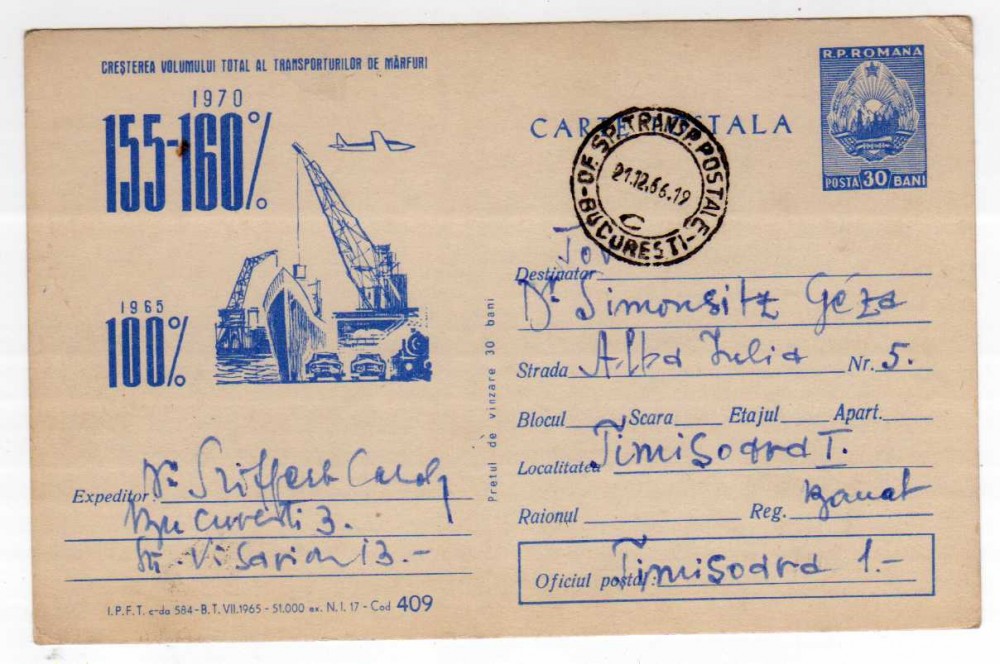 CREȘTEREA VOLUMULUI TOTAL AL TRANSPORTURILOR DE MĂRFURI
1970
155-160%
1965
100%
R.P. ROMANA
POSTA 30 BANI
CARTE POSTALA
OF. SP. TRANSP. POSTALE - BUCURESTI -
21.12.66.19
C
Tov
Destinatar Dr. Simonsitz Géza
Strada Alba Iulia Nr. 5.
Blocul Scara Etajul Apart.
Localitatea Timișoara I.
Raionul Reg. Banat
Oficiul poștal: Timișoara 1.-
Pretul de vinzare 30 bani
Expeditor: Dr.
București 3.
Str. Visarion 13.-
I.P.F.T. c-da 584-B.T. VII.1965 - 51.000 ex. N.I. 17 - Cod 409